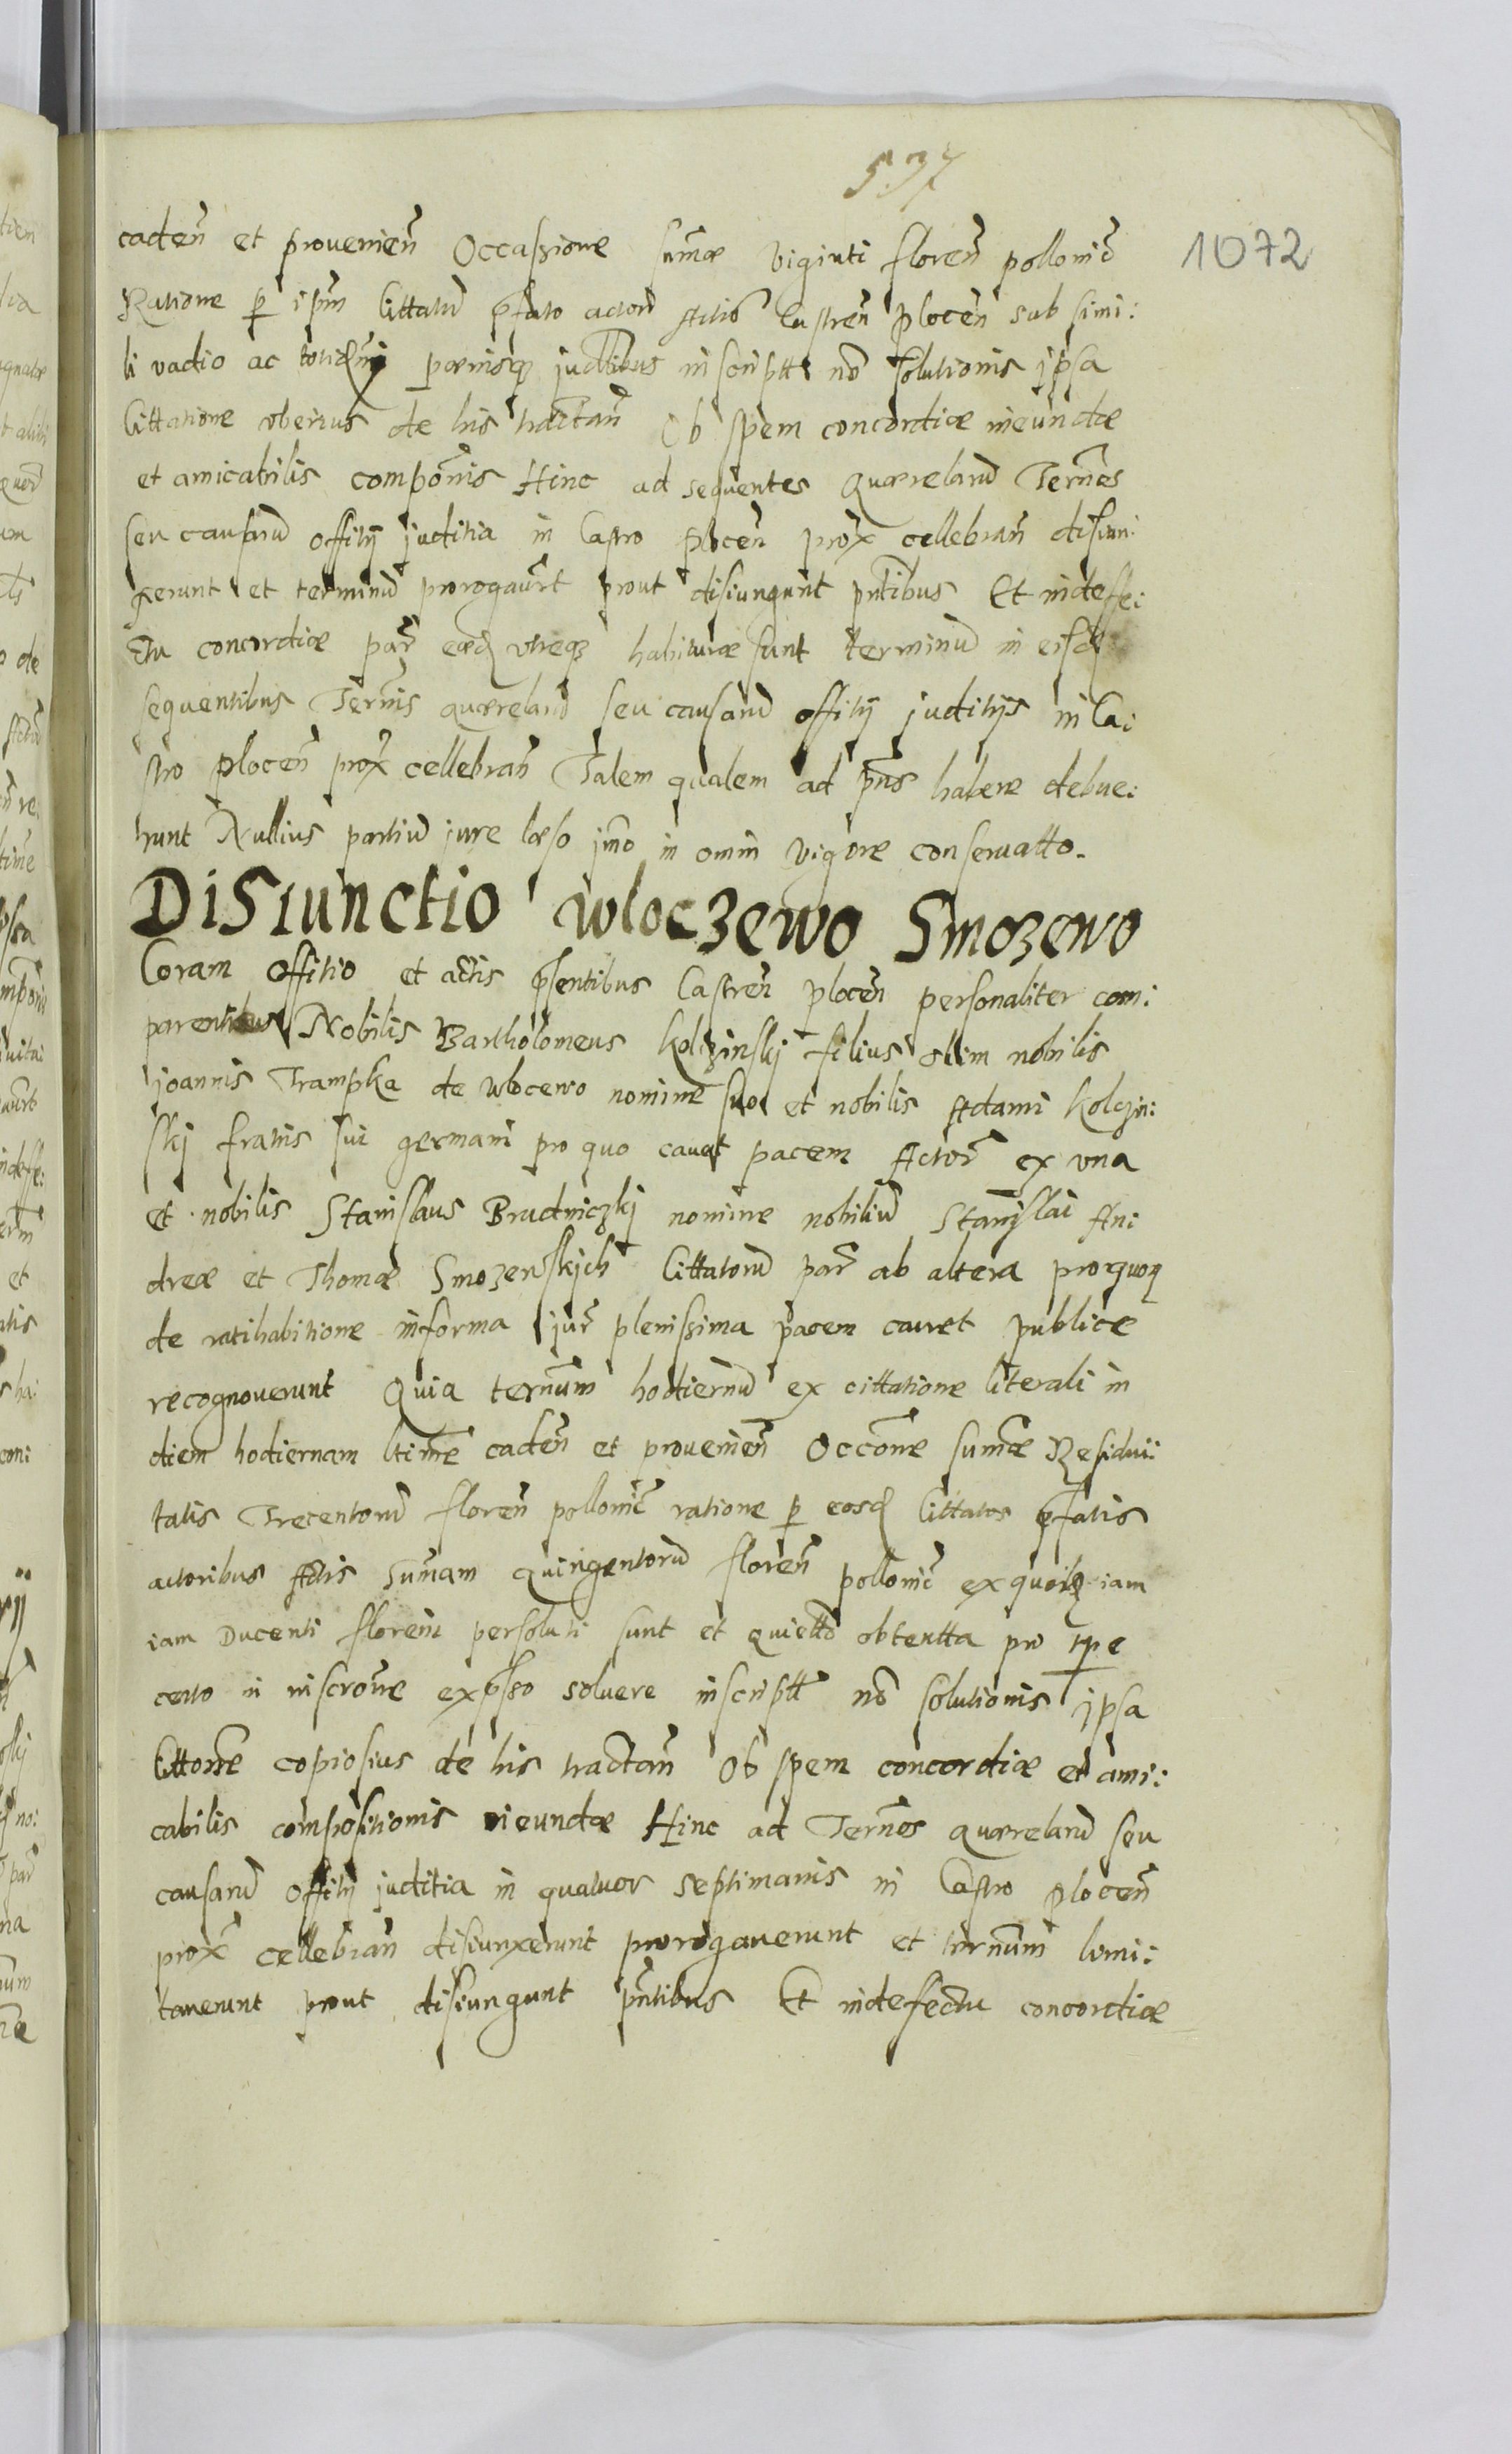 537
1072
cadeñ et prouenieñ Occassione sum̃æ viginti floreñ pollonic̃
Ratione p ipm̃ Cittatu͂ p̃fato actori Actis Castreñ plocen̄ sub simi:
li vadio ac pœnisq̃ judtibus inscriptt no͂ solutionis ipsa
Cittatione vberius de his tractañ Ob spem concordiæ ineundæ
et amicabilis compōnis Hinc ad sequentes quærelaru͂ Term̃os
seu causaru͂ offitij juditia in Castro plocen̄ prox̃ cellebrañ disiun:
xerunt et terminu͂ prorogauer̃t prout disiungunt pñtibus Et indeffe:
ctu concordiæ par̃ eæd utreq̃ habituræ sunt terminu͂ in eisd
sequentibus Term̃is quærelaru͂ seu causaru͂ offitij juditijs in Ca:
stro plocen̄ prox̃ cellebrañ Talem qualem ad pñs habere debue:
runt Nullius partiu͂ iure læso jm̃o in omni vigore conseruatto.
Disiunctio wloczewo Smozewo
Coram offitio et actis p̃sentibus Castreñ plocen̄ personaliter com:
parentibus Nobilis Bartholomeus Kolczinskj filius olim nobilis
joannis Trampka de wlocewo nomine suo et nobilis Adami Kolczin:
skj fratris sui germani pro quo cavet pacem Actor̃ ex vna
et nobilis Stanislaus Brudniczkj nomine nobiliu͂ Stanislai An:
dreæ et Thomæ Smozewskjch Cittatoru͂ par̃ ab altera proquoq̃
de ratihabitione informa jur̃ plenissima pacem cauet publice
recognouerunt Quia term̃um hodiernu͂ ex cittatione literali in
diem hodiernam ltim̃e cadeñ et prouenieñ Occōne sum̃æ Residui:
tatis Trecentoru͂ floreñ pollonic̃ ratione p eosd Cittatos p̃fatis
actoribus Actis Sum̃am quingentoru͂ floreñ pollonic̃ exquoib iam
iam Ducenti floreni persoluti sunt et quietto obtentta pro tpe
certo in inscrōne exp̃sso soluere inscriptt no͂ solutionis ipsa
Cittōne copiosius de his tractañ Ob spem concordiæ et ami:
cabilis compositionis ineundæ Hinc ad Term̃os quærelaru͂ seu
causaru͂ offitij juditia in quatuor septimanis in Castro plocen̄
prox̃ cellebrañ disiunxerunt prorogauerunt et term̃um limi:
tauerunt prout disiungunt pñtibus Et indefectu concordiæ